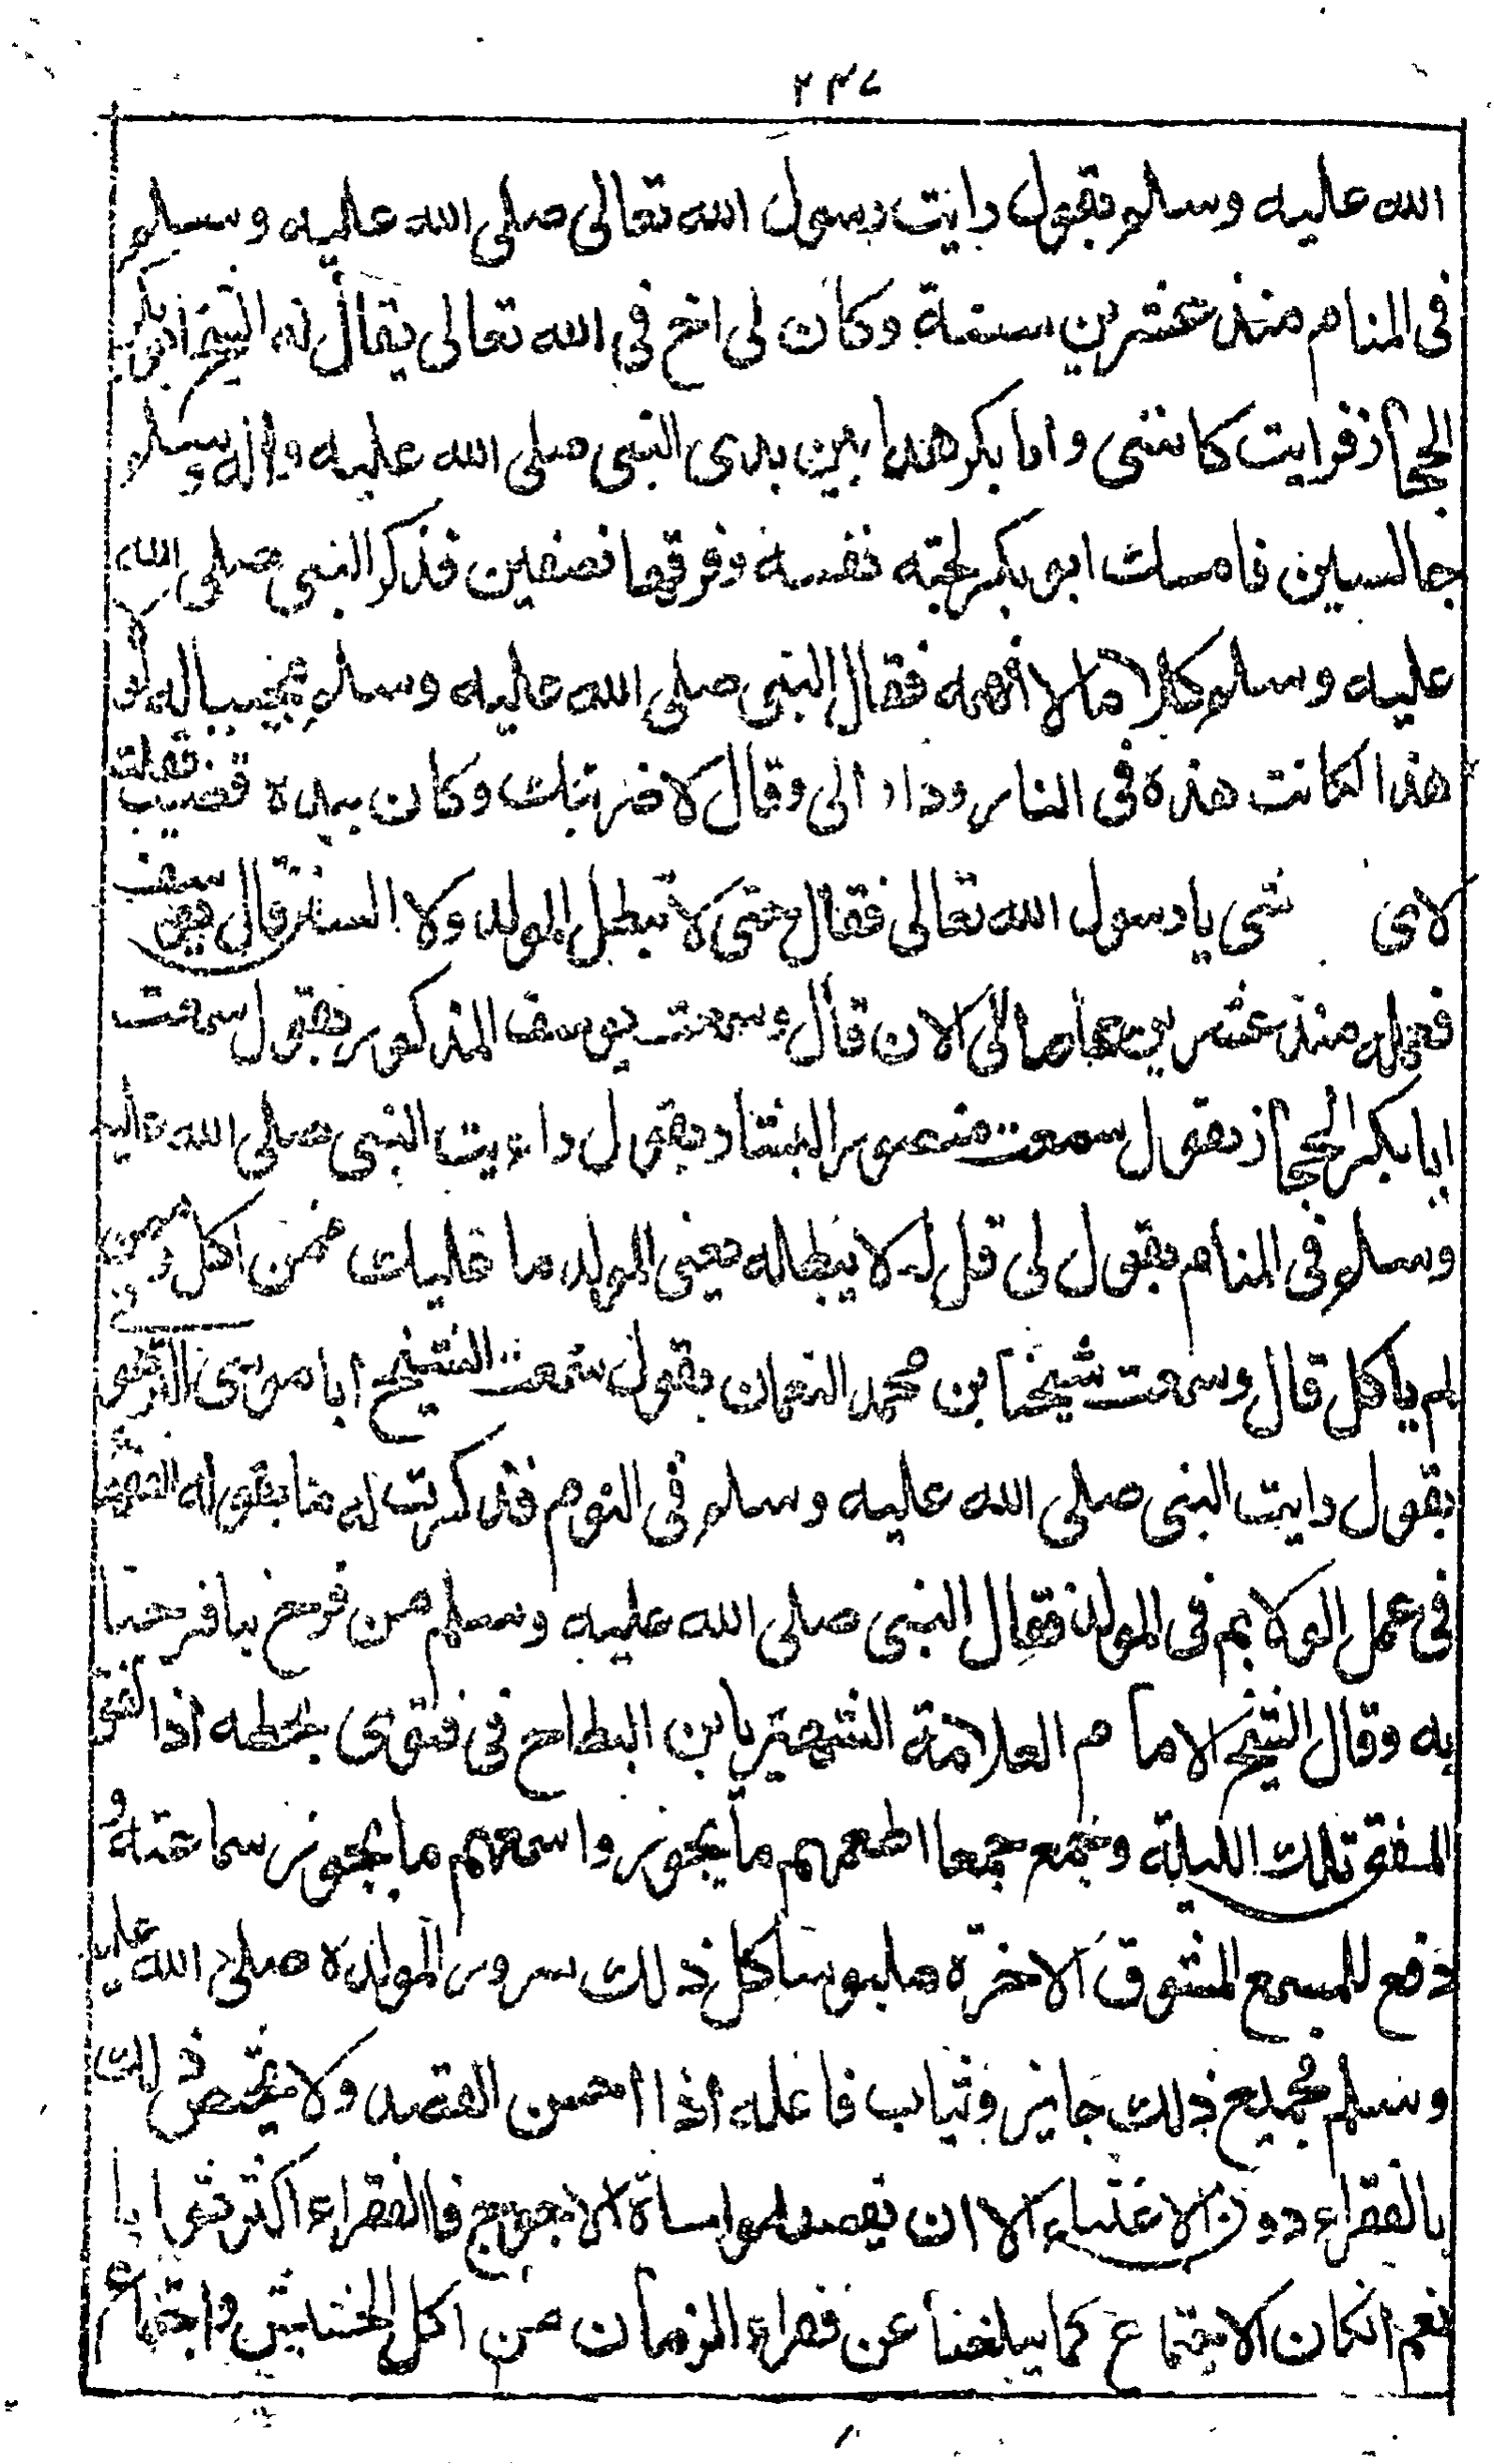 ٢٣٧
الله عليه وسلم يقول رايت رسول الله تعالى صلى الله عليه وسلم
فى المنام منذ عشرين سنة وكان لى اخ فى الله تعالى يقال له الشيخ ابو بكر
الحجاز فرايت كاننى وابا بكر هذا بين يدى النبى صلى الله عليه واله وسلم
جالسين فامسك ابو بكر لحيته نفسه وفرقها نصفين فذكر النبى صلى الله
عليه وسلم كلاما لا افهمه فقال النبى صلى الله عليه وسلم مجيبا له لو لا
هذا لكانت هذه فى النار ودار الى وقال لاضربنك وكان بيده قضيب فقلت
لاى شى يا رسول الله تعالى فقال حتى لا تبطل المولد ولا السنن قال يوسف
فعمله منذ عشرين عاما الى الان قال وسمعت يوسف المذكور يقول سمعت
ابا بكر الحجاز يقول سمعت منصور النشار يقول راءيت النبى صلى الله عليه
وسلم فى المنام يقول لى قل له لا يبطله يعنى المولد ما عليك ممن اكل وممن
لم ياكل قال وسمعت شيخنا بن محمد النعمان يقول سمعت الشيخ ابا موسى
يقول رايت النبى صلى الله عليه وسلم فى النوم فذكرت له ما يقوله الفقها
فى عمل الولايم فى المولد فقال النبى صلى الله عليه وسلم من فرح بنا فرحنا
به وقال الشيخ الامام العلامة الشهير بابن البطاح فى فتوى بخطه اذا انفق
المنفق تلك الليلة وجمع جمعا اطعمهم ما يجوز واسمعهم ما يجوز سماعته و
دفع للمسمع المشوق الاخرة ملبوسا كل ذلك سرور المولده صلى الله عليه
وسلم فجميع ذلك جايز وثياب فاعله اذا احسن القصد ولا يختص ذلك
بالفقراء دون الاغنياء الا ان يقصد مواساة الاحوج فالفقراء اكثر ثوابا
نعم انكان الاجتماع كما يبلغنا عن فقراء الزمان من اكل الحشيش واجتماع